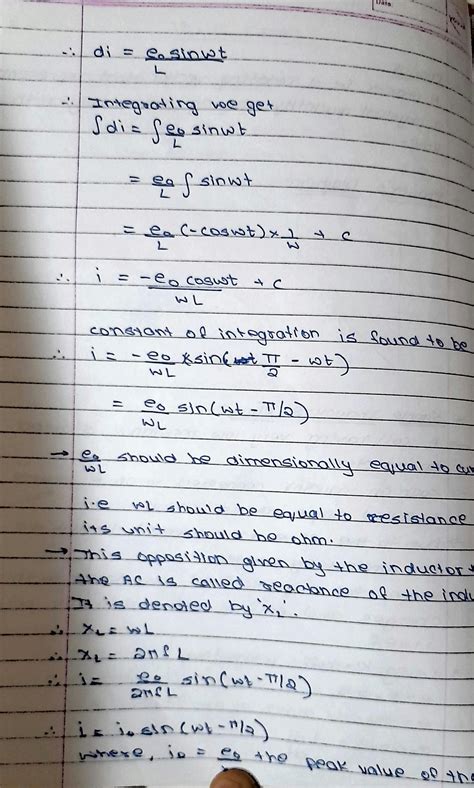 Date
∴ di = e₀ sinwt / L
∴ Integrating we get
∫di = ∫ e₀/L sinwt
= e₀/L ∫ sinwt
= e₀/L (-coswt) × 1/w + c
∴ i = -e₀ coswt / wL + c
constant of integration is found to be
∴ i = -e₀/wL × sin( π/2 - wt)
= e₀/wL sin(wt - π/2)
→ e₀/wL should be dimensionally equal to cu
i.e wL should be equal to resistance
its unit should be ohm.
→ This opposition given by the inductor
the AC is called reactance of the indu
It is denoted by 'x_L'.
∴ x_L = wL
∴ x_L = 2πfL
∴ i = e₀/2πfL sin(wt - π/2)
∴ i = i₀ sin(wt - π/2)
where, i₀ = e₀ the peak value of the